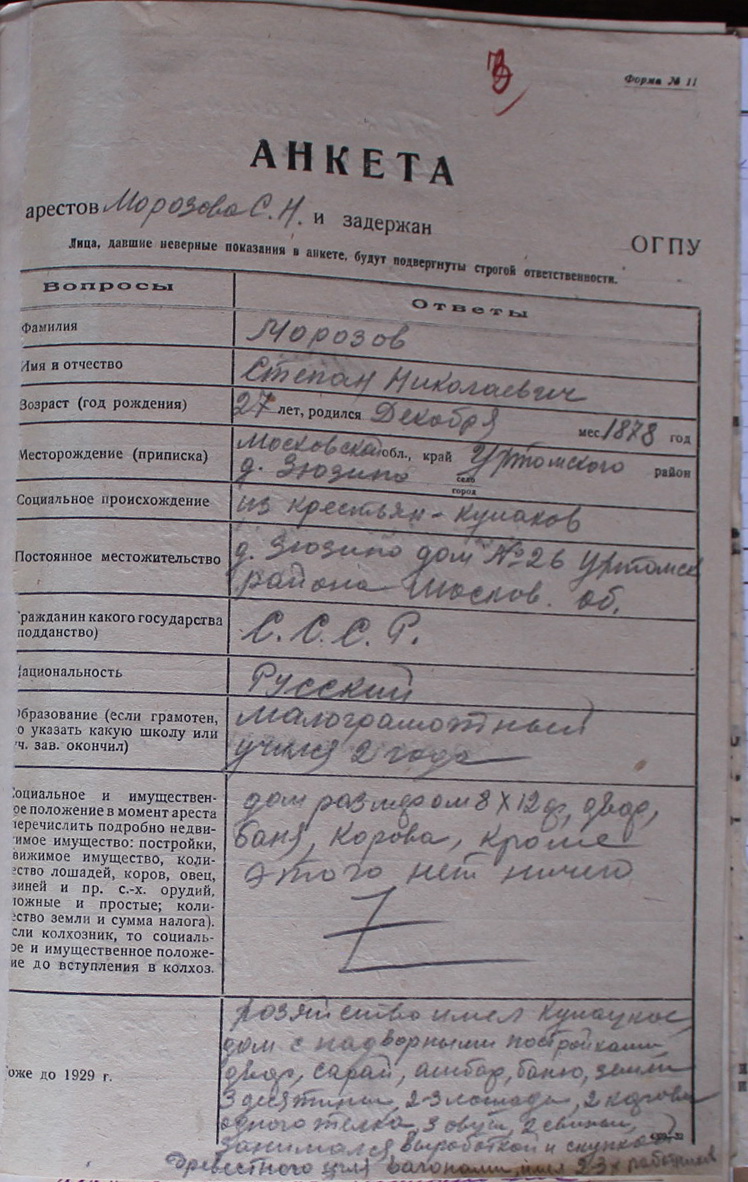 Форма № 11
АНКЕТА
арестов Морозова С. Н. и задержан
ОГПУ
Лица, давшие неверные показания в анкете, будут подвергнуты строгой ответственности.
Вопросы
Ответы
Фамилия
Морозов
Имя и отчество
Степан Николаевич
Возраст (год рождения)
лет, родился Декабря мес 1878 год
Месторождение (приписка)
Московской обл., край район
д. Зюзино село
город
Социальное происхождение
из крестьян - кулаков
Постоянное местожительство
д. Зюзино дом № 26
района Москов. об.
Гражданин какого государства
подданство)
С. С. С. Р.
Национальность
Русский
Образование (если грамотен,
то указать какую школу или
уч. зав. окончил)
малограмотный
учился 2 года
Социальное и имуществен-
ое положение в момент ареста
перечислить подробно недви-
имое имущество: постройки,
движимое имущество, коли-
ество лошадей, коров, овец,
виней и пр. с.-х. орудий,
ложные и простые; коли-
ество земли и сумма налога).
сли колхозник, то социаль-
ое и имущественное положе-
ие до вступления в колхоз.
дом размером 8 X 12 двор,
баня, корова, кроме
этого нет ничего
Тоже до 1929 г.
хозяйство имел кулацкое,
дом с надворными постройками
двор, сарай, амбар, баню, земли
3 десятины, 2-3 лошади, 2 коровы
одного телка, 3 овцы, 2 свиньи,
занимался выработкой и скупкой
древесного угля вагонами, имел 2-3х работников